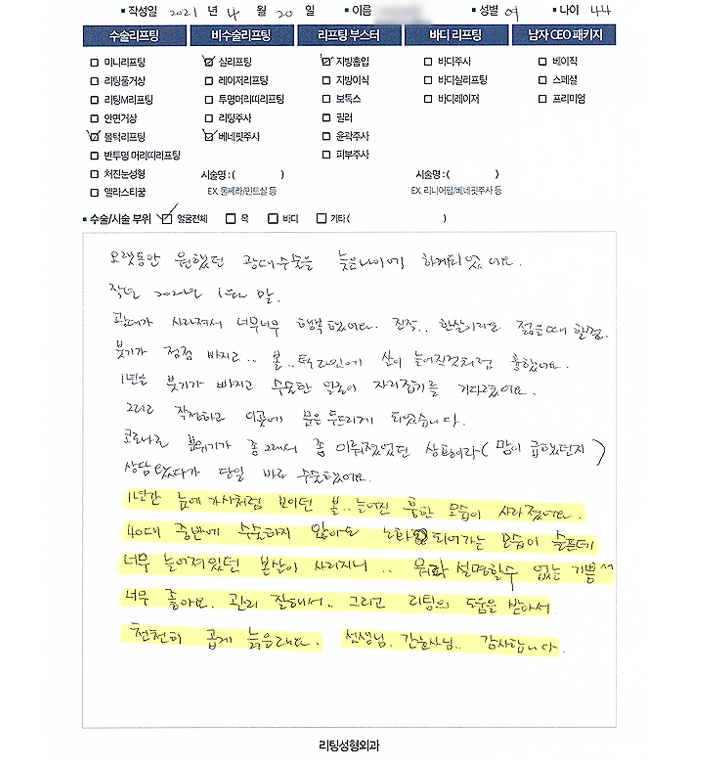 작성일 2021 년 4 월 20 일 이름 성별 여 나이 44
수술리프팅 비수술리프팅 리프팅 부스터 바디 리프팅 남자 CEO 패키지
미니리프팅 실리프팅 지방흡입 바디주사 베이직
리팅풀거상 레이저리프팅 지방이식 바디실리프팅 스페셜
리팅M리프팅 투명머리띠리프팅 보톡스 바디레이저 프리미엄
안면거상 리팅주사 필러
볼턱리프팅 베네핏주사 윤곽주사
반투명 머리띠리프팅 피부주사
처진눈성형 시술명 : ( ) 시술명 : ( )
엘라스티꿈 EX. 울쎄라/민트실 등 EX. 리니어펌/베네핏주사 등
수술/시술 부위 얼굴전체 목 바디 기타 ( )
오랫동안 원했던 광대수술을 늦은나이에 하게되었어요.
작년 2020년 1월 말.
광대가 사라져서 너무너무 행복했었어요. 진작.. 한살이라도 젊을때 할걸.
붓기가 점점 빠지고.. 볼.. 턱라인에 살이 늘어진것처럼 흉했어요.
1년을 붓기가 빠지고 수술한 얼굴이 자리잡기를 기다렸어요.
그리고 작정하고 이곳에 문을 두드리게 되었습니다.
코로나로 분위기가 좀 그래서 좀 미뤄졌었던 상태이라 (맘이 급했던지)
상담 왔다가 당일 바로 수술했어요.
1년간 눈에 가시처럼 보이던 볼.. 늘어진 흉한 모습이 사라졌어요.
40대 중반에 수술하지 않아도 노화 되어가는 모습이 슬픈데
너무 늘어져있던 볼살이 사라지니.. 뭐라 설명할수 없는 기쁨^^
너무 좋아요. 관리 잘해서.. 그리고 리팅의 도움을 받아서
천천히 곱게 늙을래요. 선생님. 간호사님.. 감사합니다.
리팅성형외과